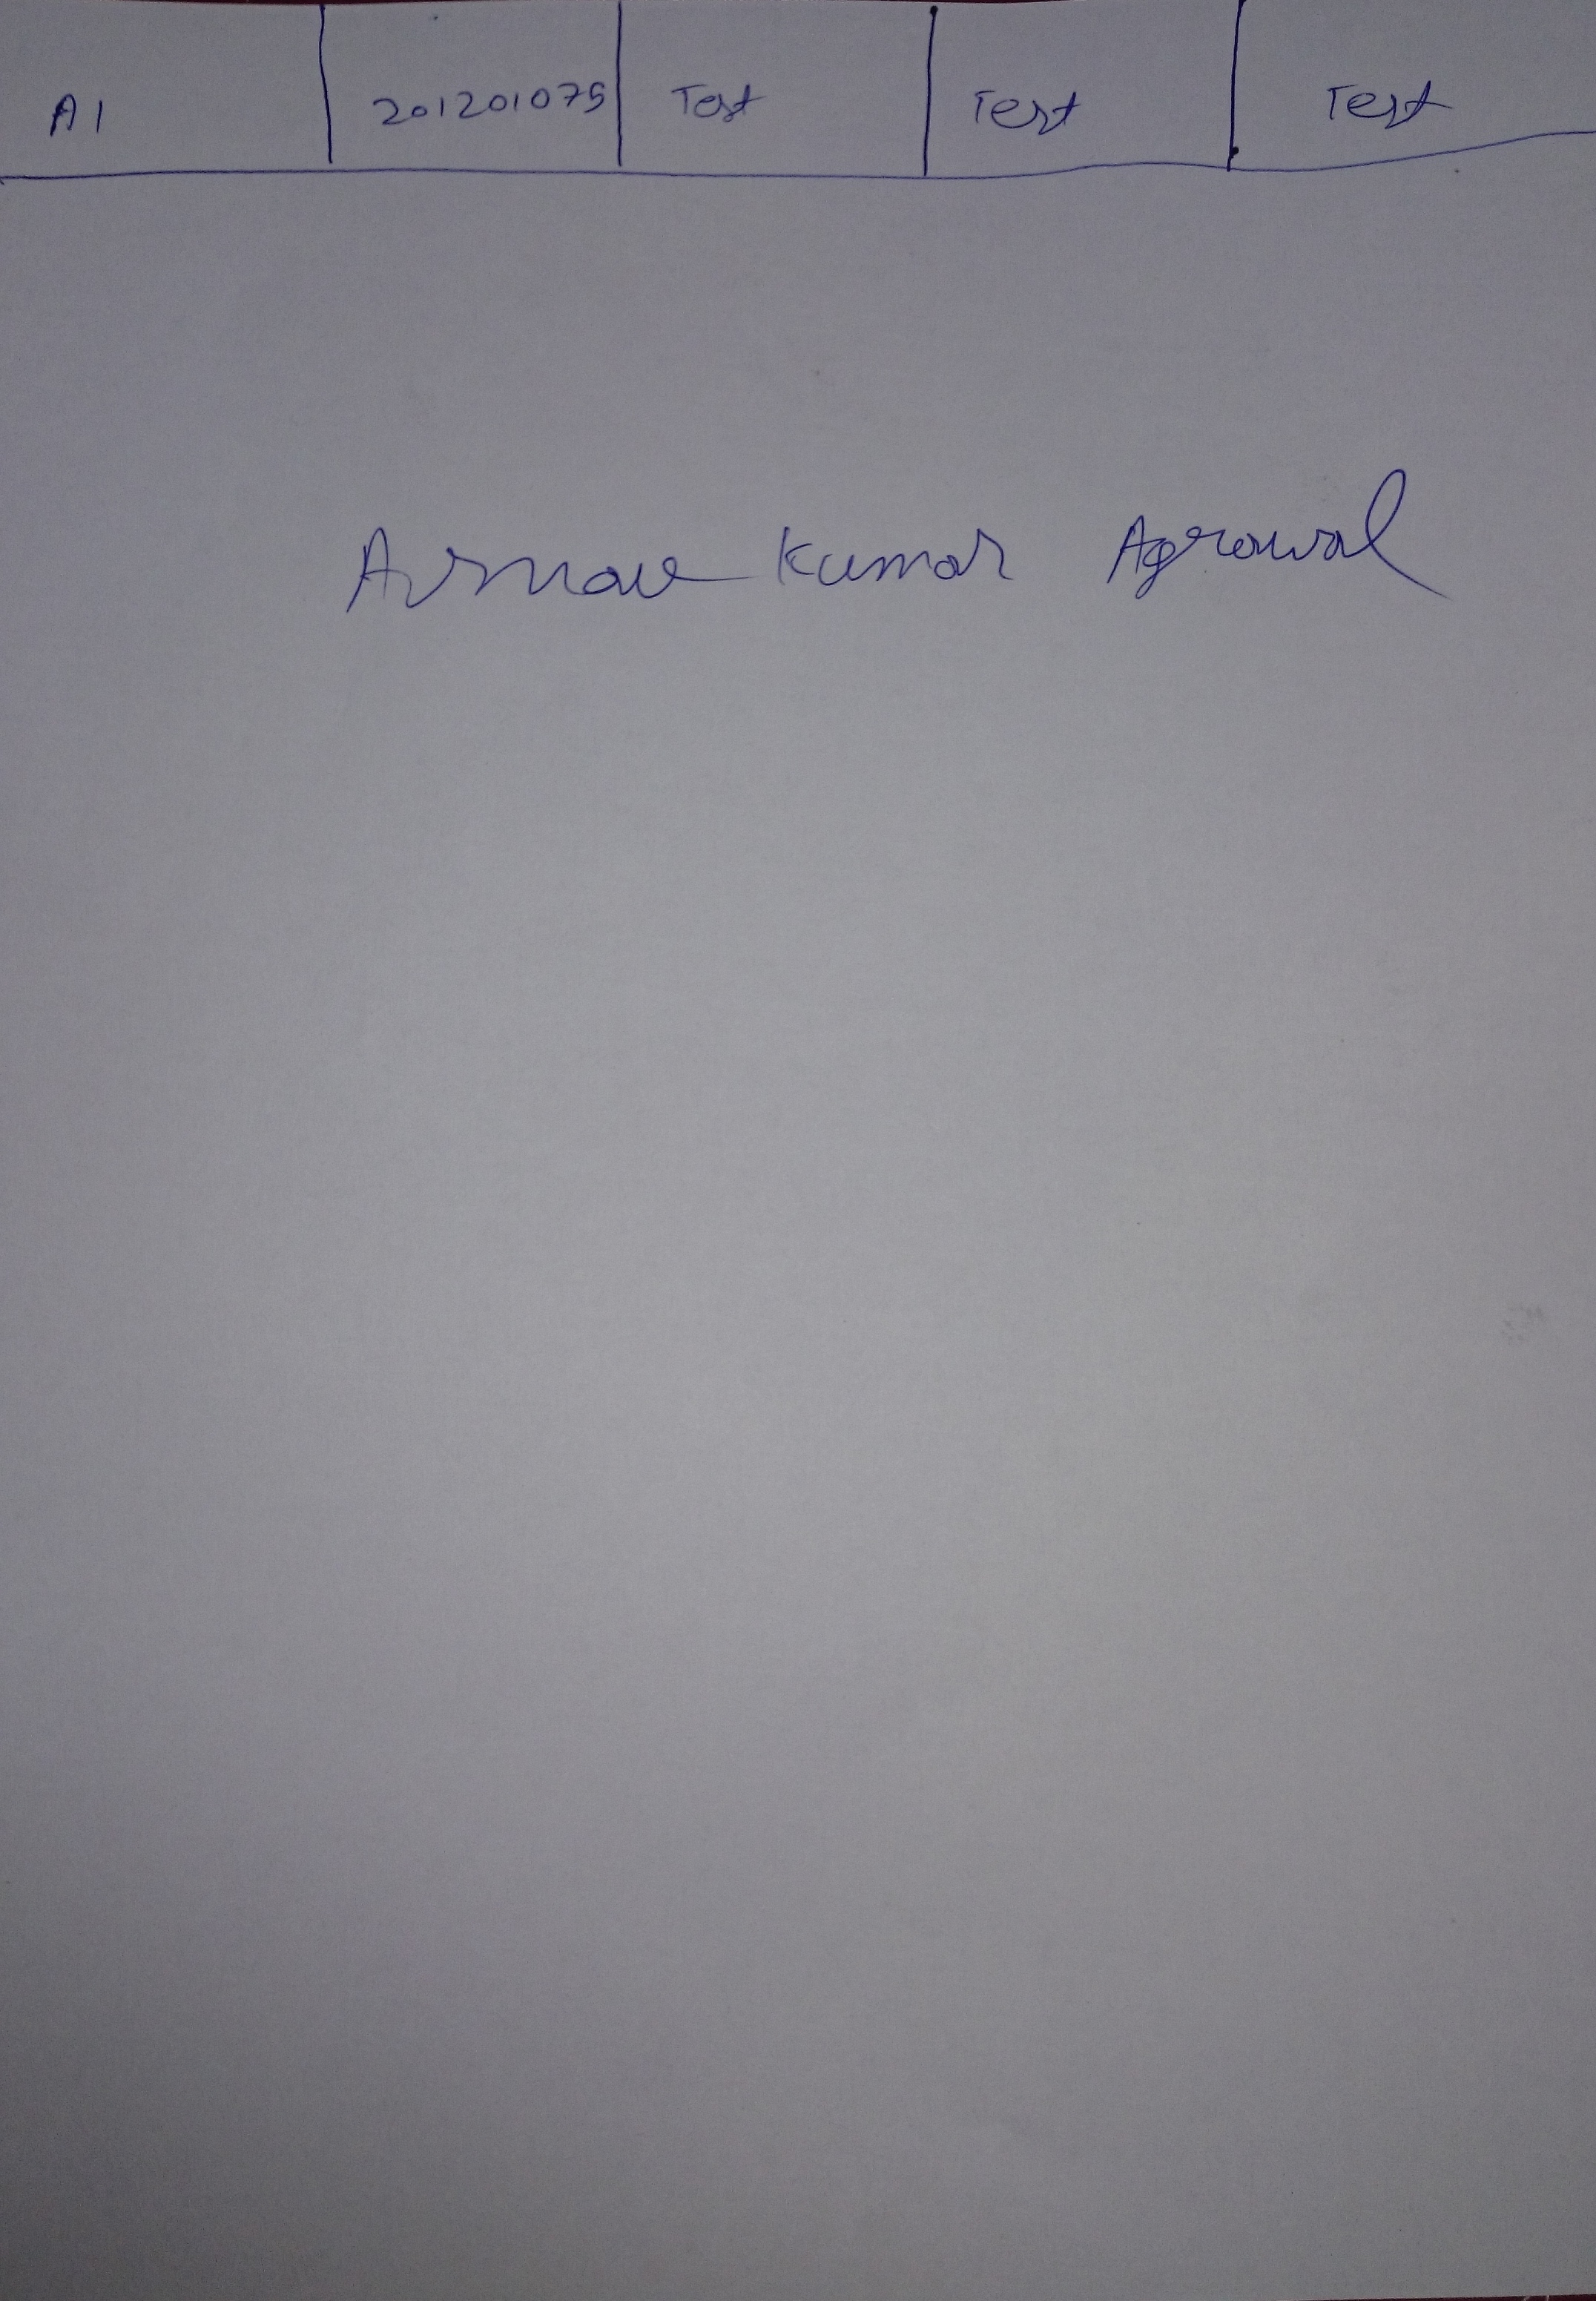 A1 201201075 Test Test Test
Arnav Kumar Agrawal